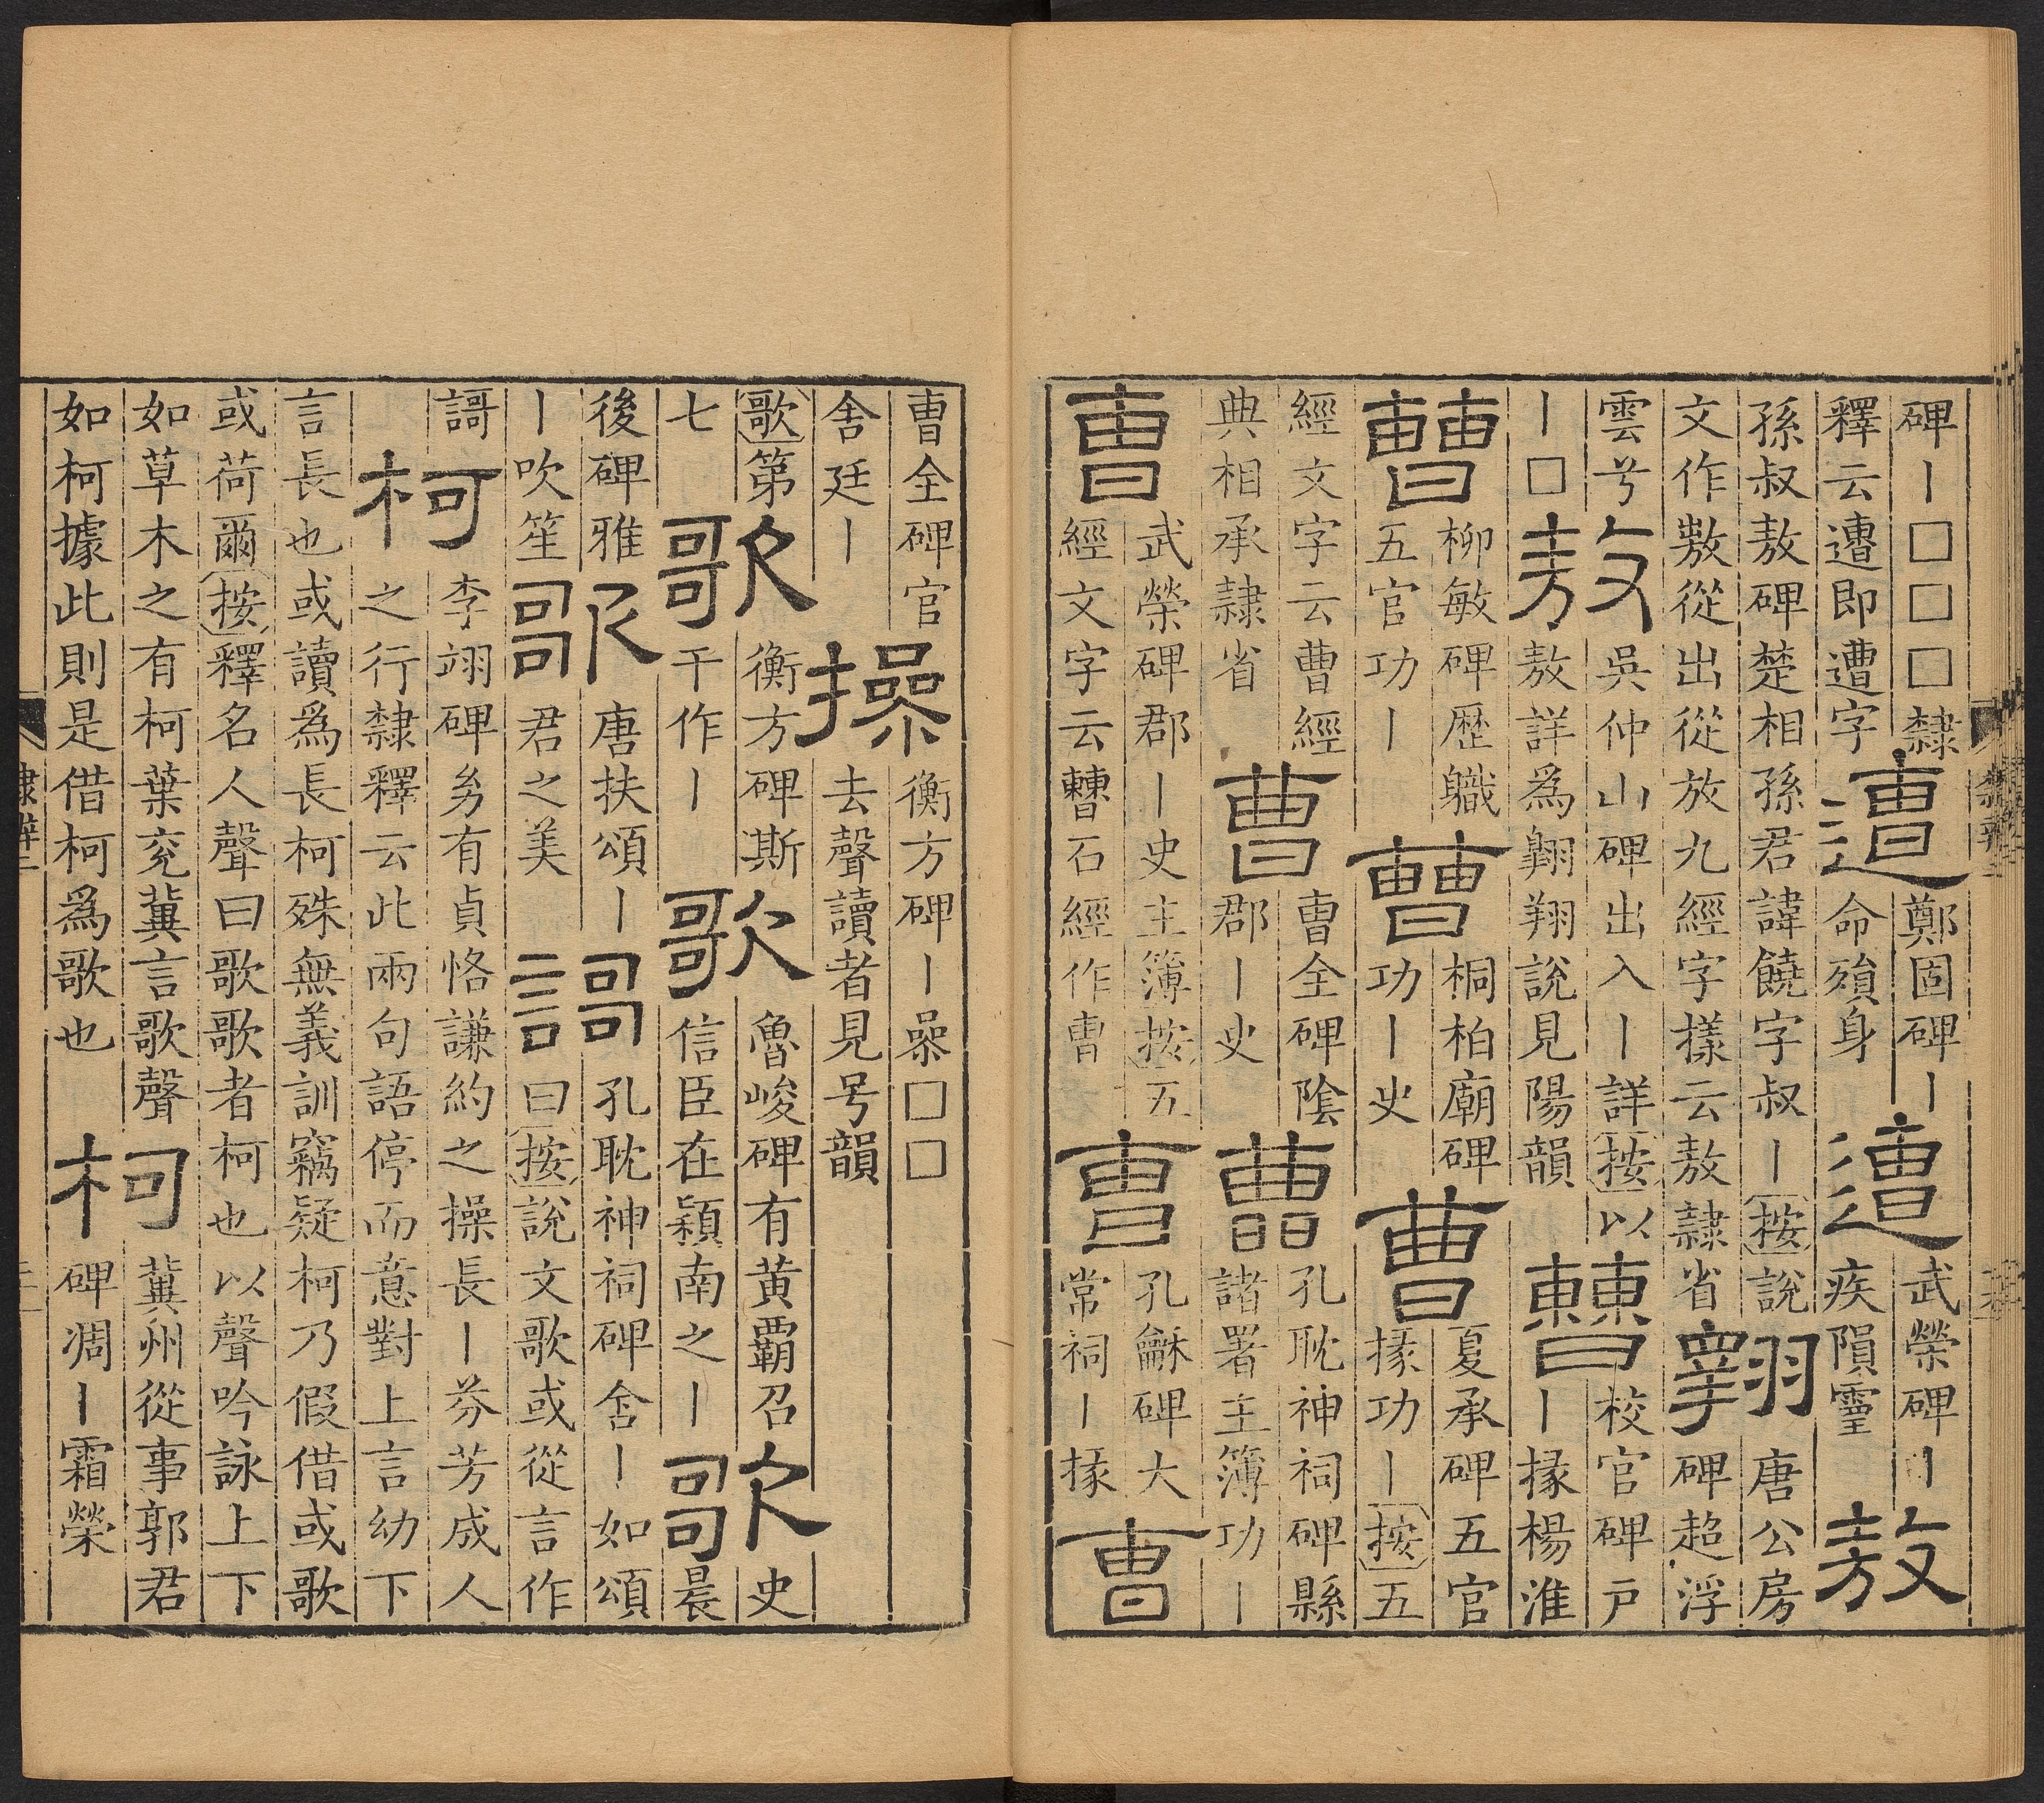 碑丨□□□隸
釋云遭即遭字
遭
鄭固碑丨
命殞身
遭
武榮碑丨
疾隕靈
敖
孫叔敖碑楚相孫君諱饒字叔丨按說
文作敖從出從放九經字樣云敖隸省
翱
唐公房
碑超浮
雲兮
丨□
敖
吳仲山碑出入丨詳按以
敖詳爲翱翔說見陽韻
曹
校官碑戶
丨掾楊淮
曹
柳敏碑歷職
五官功丨
曹
桐柏廟碑
功丨史
曹
夏承碑五官
掾功丨按五
經文字云曹經
典相承隸省
曹
曹全碑陰
郡丨史
曹
孔耽神祠碑縣
諸署主簿功丨
曹
武榮碑郡丨史主簿按五
經文字云曹石經作曹
曹
孔龢碑大
常祠丨掾
曹
曹全碑官
舍廷丨
操
衡方碑丨喿□□
去聲讀者見号韻
歌第
七
歌
衡方碑斯
干作丨
歌
魯峻碑有黃霸召
信臣在潁南之丨
歌
史
晨
後碑雅
丨吹笙
歌
唐扶頌丨
君之美
謌
孔耽神祠碑舍丨如頌
曰按說文歌或從言作
謌
柯
李翊碑㓜有貞恪謙約之操長丨芬芳成人
之行隸釋云此兩句語停而意對上言幼下
言長也或讀爲長柯殊無義訓竊疑柯乃假借或歌
或荷爾按釋名人聲曰歌歌者柯也以聲吟詠上下
如草木之有柯葉兗冀言歌聲
如柯據此則是借柯爲歌也
柯
冀州從事郭君
碑凋丨霜榮
隸辨二